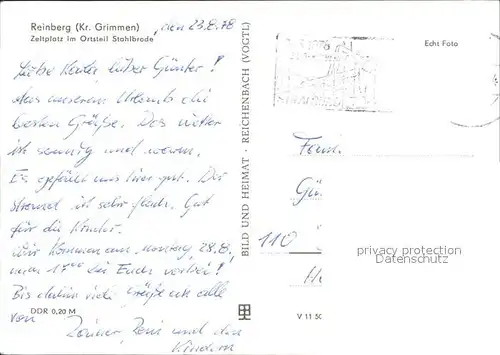 Reinberg (Kr. Grimmen)
Zeltplatz im Ortsteil Stahlbrode
den 23.8.78
Liebe Käte lieber Günter!
Aus unserem Urlaub die
besten Grüße. Das Wetter
ist sonnig und warm.
Es gefällt uns hier gut. Der
Strand ist sehr flach. Gut
für die Kinder.
Wir kommen am Montag, 28.8.
um 17⁰⁰ bei Euch vorbei!
Bis dahin viele Grüße an alle
von
und den
Kindern
DDR 0,20 M
BILD UND HEIMAT · REICHENBACH (VOGTL)
Echt Foto
Fam.
Gü
110
privacy protection
Datenschutz
V 11 50